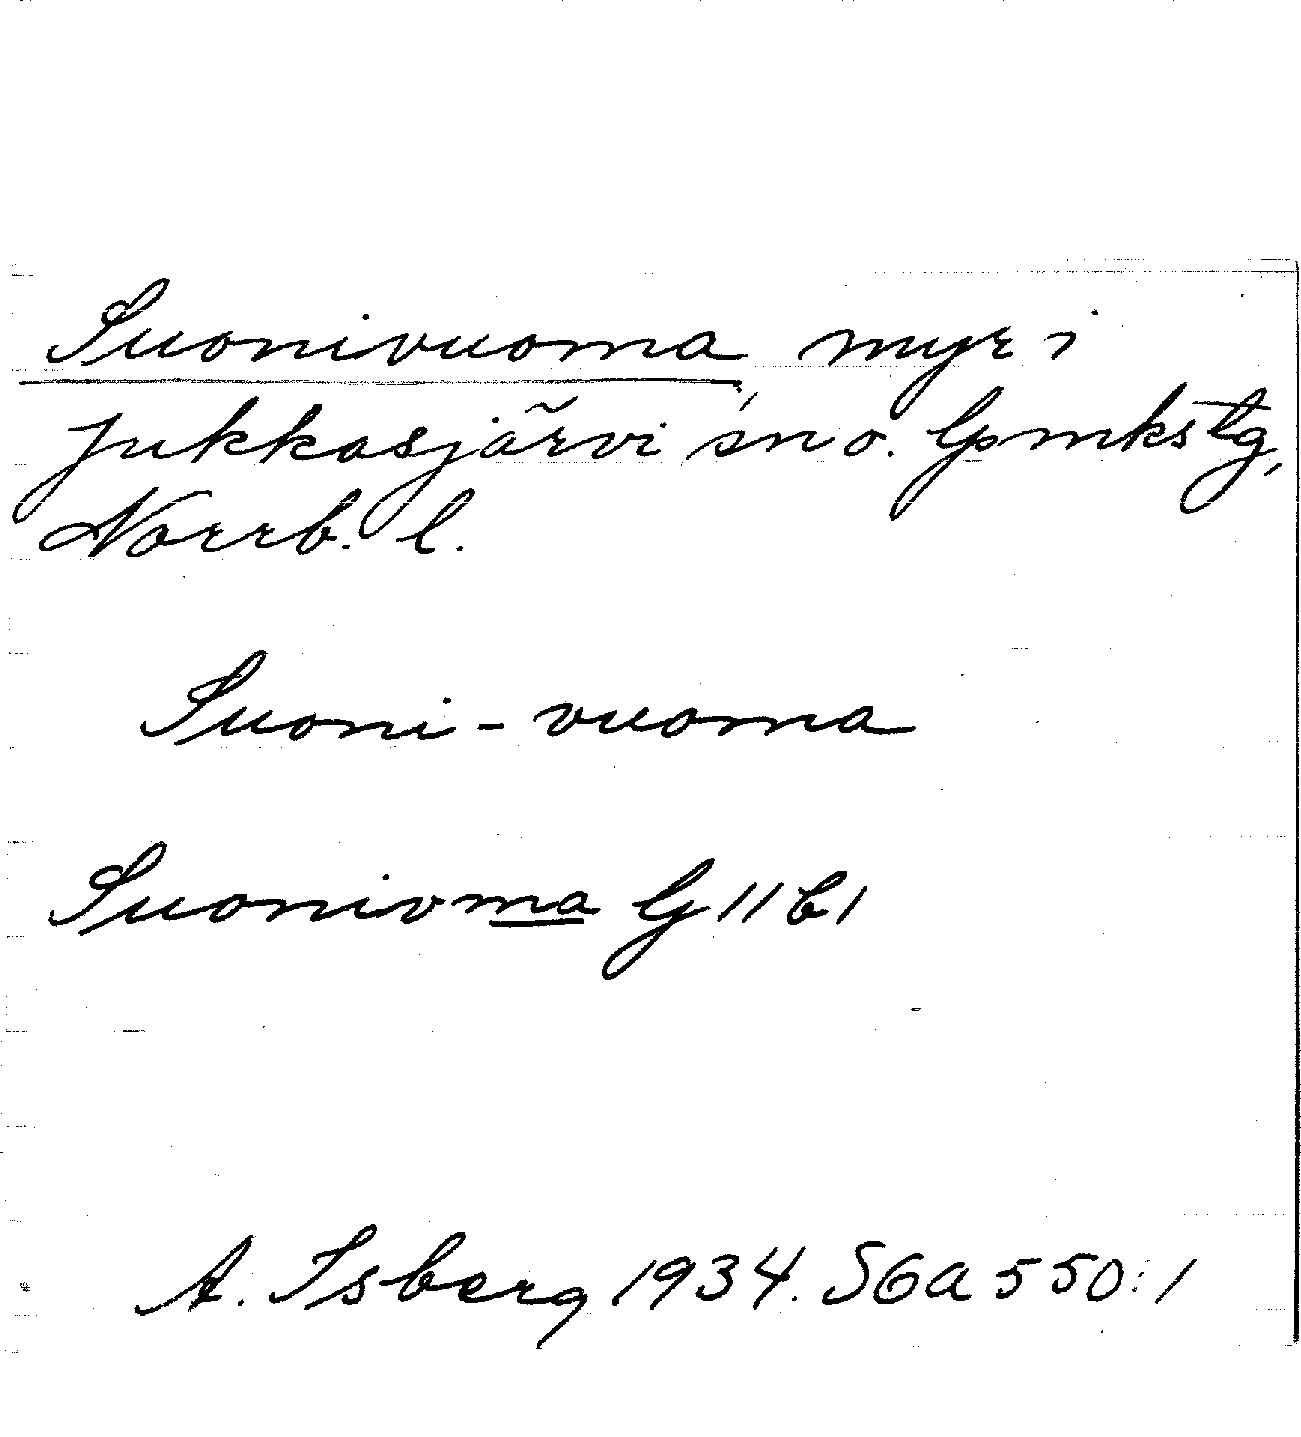 Suonivuoma, myr i
Jukkasjärvi sn o. lpmkstg,
Norrb. l.
Suoni-vuoma
Suonivma G 11 b 1
A. Isberg 1934. SGA 550:1